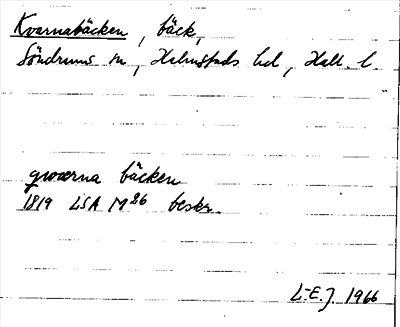 Kvarnabäcken, bäck,
Söndrums sn, Halmstads hd, Hall. l.
qwarna bäcken
1819 LSA M86 beskr.
L-E.J. 1966